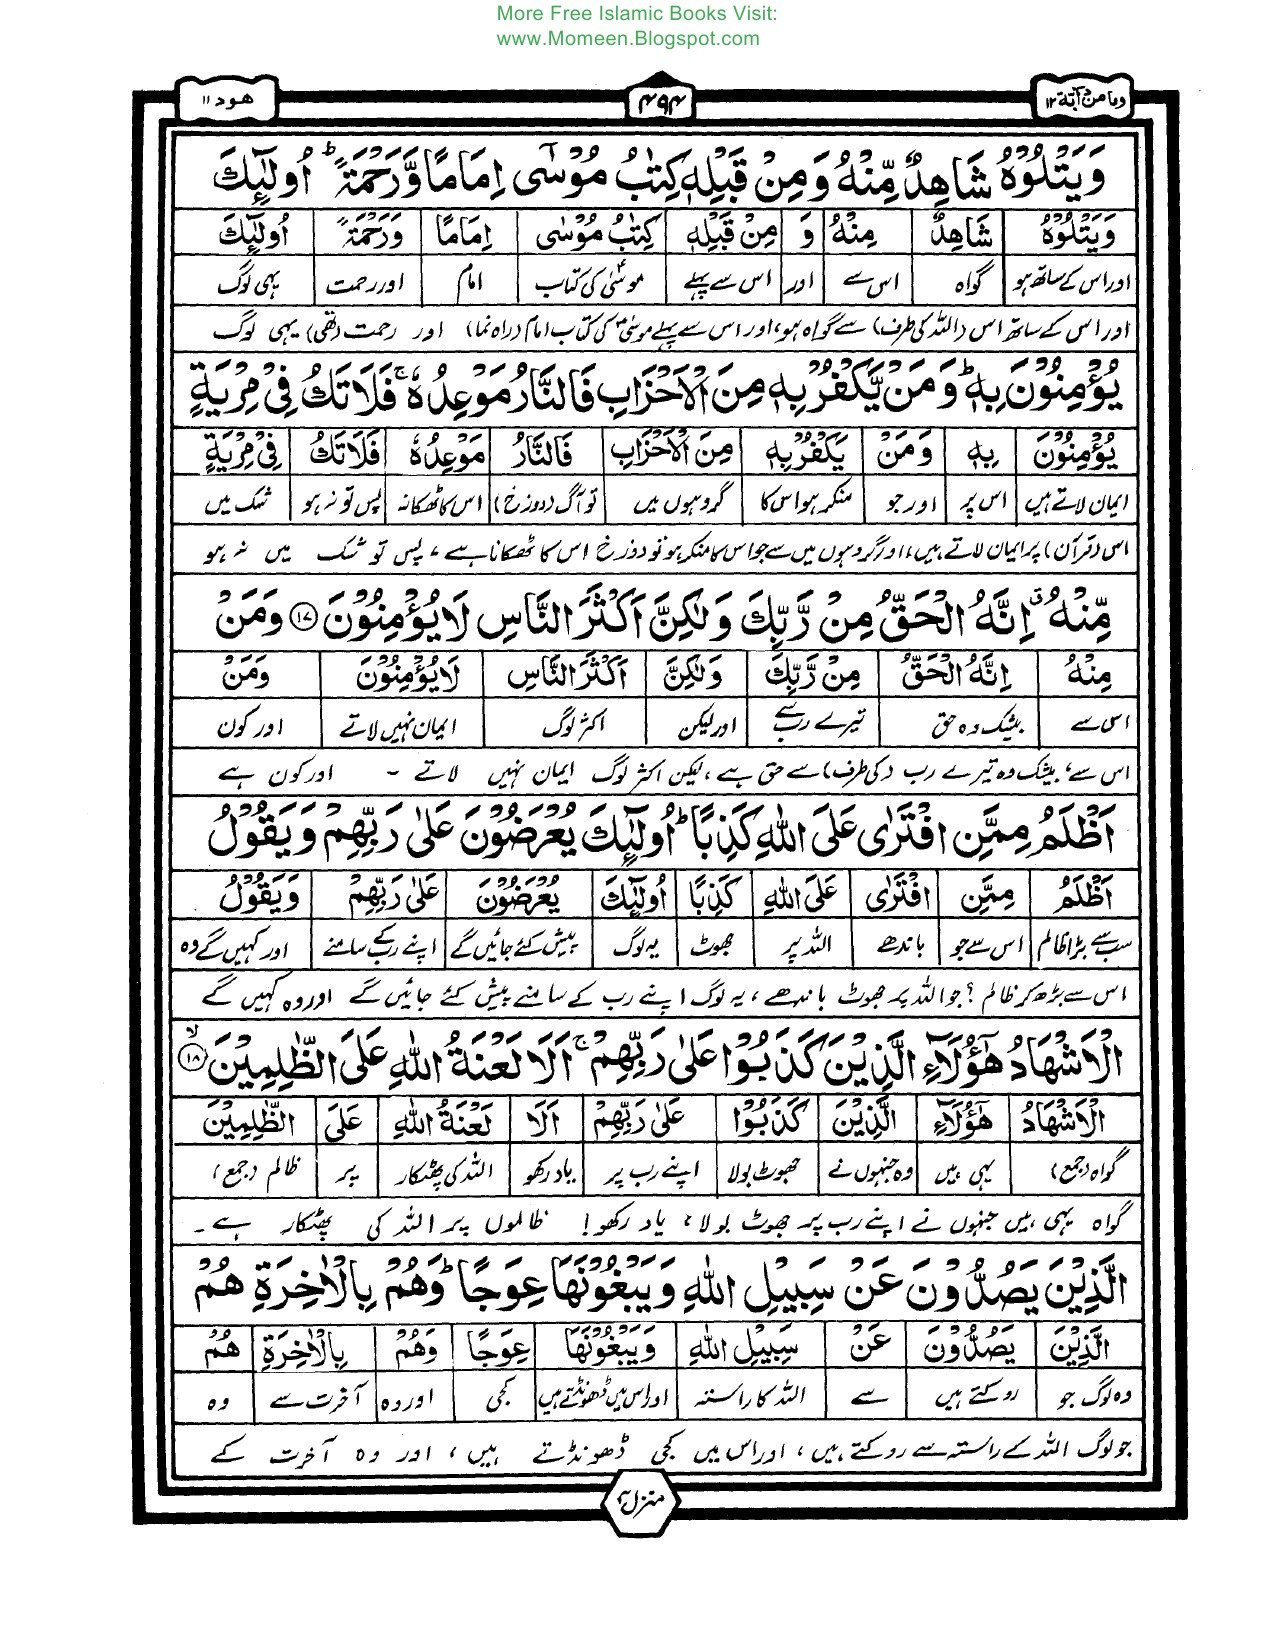 More Free Islamic Books Visit:
www.Momeen.Blogspot.com
وما من دآبة ١٢
۴۹۴
ھود ۱۱
وَيَتْلُوْهُ شَاهِدٌ مِّنْهُ وَمِنْ قَبْلِهٖ كِتٰبُ مُوْسٰٓى اِمَامًا وَّرَحْمَةً ؕ اُولٰٓئِكَ
وَيَتْلُوْهُ شَاهِدٌ مِنْهُ وَ مِنْ قَبْلِهٖ كِتٰبُ مُوْسٰى اِمَامًا وَرَحْمَةً اُولٰٓئِكَ
اور اس کے ساتھ ہو گواہ اس سے اور اس سے پہلے موسیٰؑ کی کتاب امام اور رحمت یہی لوگ
اور اس کے ساتھ اس (اللہ کی طرف) سے گواہ ہو، اور اس سے پہلے موسیٰؑ کی کتاب امام (راہ نما) اور رحمت (تھی) یہی لوگ
يُؤْمِنُوْنَ بِهٖ ؕ وَمَنْ يَّكْفُرْ بِهٖ مِنَ الْاَحْزَابِ فَالنَّارُ مَوْعِدُهٗ ۚ فَلَا تَكُ فِيْ مِرْيَةٍ
يُؤْمِنُوْنَ بِهٖ وَمَنْ يَكْفُرْ بِهٖ مِنَ الْاَحْزَابِ فَالنَّارُ مَوْعِدُهٗ فَلَا تَكُ فِيْ مِرْيَةٍ
ایمان لاتے ہیں اس پر اور جو منکر ہو اس کا گروہوں میں تو آگ (دوزخ) اس کا ٹھکانہ پس تو نہ ہو شک میں
اس (قرآن) پر ایمان لاتے ہیں، اور گروہوں میں سے جو اس کا منکر ہو تو دوزخ اس کا ٹھکانا ہے، پس تو شک میں نہ ہو
مِّنْهُ ۤ اِنَّهُ الْحَقُّ مِنْ رَّبِّكَ وَلٰكِنَّ اَكْثَرَ النَّاسِ لَا يُؤْمِنُوْنَ ۝۱۷ وَمَنْ
مِنْهُ اِنَّهُ الْحَقُّ مِنْ رَّبِّكَ وَلٰكِنَّ اَكْثَرَ النَّاسِ لَا يُؤْمِنُوْنَ وَمَنْ
اس سے بیشک وہ حق تیرے رب سے اور لیکن اکثر لوگ ایمان نہیں لاتے اور کون
اس سے، بیشک وہ تیرے رب (کی طرف) سے حق ہے، لیکن اکثر لوگ ایمان نہیں لاتے - اور کون ہے
اَظْلَمُ مِمَّنِ افْتَرٰى عَلَى اللّٰهِ كَذِبًا ؕ اُولٰٓئِكَ يُعْرَضُوْنَ عَلٰى رَبِّهِمْ وَيَقُوْلُ
اَظْلَمُ مِمَّنِ افْتَرٰى عَلَى اللّٰهِ كَذِبًا اُولٰٓئِكَ يُعْرَضُوْنَ عَلٰى رَبِّهِمْ وَيَقُوْلُ
سب سے بڑا ظالم اس سے جو باندھے اللہ پر جھوٹ یہ لوگ پیش کئے جائیں گے اپنے رب کے سامنے اور کہیں گے وہ
اس سے بڑھ کر ظالم؟ جو اللہ پر جھوٹ باندھے، یہ لوگ اپنے رب کے سامنے پیش کئے جائیں گے اور وہ کہیں گے
الْاَشْهَادُ هٰٓؤُلَآءِ الَّذِيْنَ كَذَبُوْا عَلٰى رَبِّهِمْ ۚ اَلَا لَعْنَةُ اللّٰهِ عَلَى الظّٰلِمِيْنَ ۝۱۸ۙ
الْاَشْهَادُ هٰٓؤُلَآءِ الَّذِيْنَ كَذَبُوْا عَلٰى رَبِّهِمْ اَلَا لَعْنَةُ اللّٰهِ عَلَى الظّٰلِمِيْنَ
گواہ (جمع) یہی ہیں وہ جنہوں نے جھوٹ بولا اپنے رب پر یاد رکھو اللہ کی پھٹکار پر ظالم (جمع)
گواہ یہی ہیں جنہوں نے اپنے رب پر جھوٹ بولا، یاد رکھو! ظالموں پر اللہ کی پھٹکار ہے -
الَّذِيْنَ يَصُدُّوْنَ عَنْ سَبِيْلِ اللّٰهِ وَيَبْغُوْنَهَا عِوَجًا ؕ وَهُمْ بِالْاٰخِرَةِ هُمْ
الَّذِيْنَ يَصُدُّوْنَ عَنْ سَبِيْلِ اللّٰهِ وَيَبْغُوْنَهَا عِوَجًا وَهُمْ بِالْاٰخِرَةِ هُمْ
وہ لوگ جو روکتے ہیں سے اللہ کا راستہ اور اس میں ڈھونڈتے ہیں کجی اور وہ آخرت سے وہ
جو لوگ اللہ کے راستہ سے روکتے ہیں، اور اس میں کجی ڈھونڈتے ہیں، اور وہ آخرت کے
منزل ۳